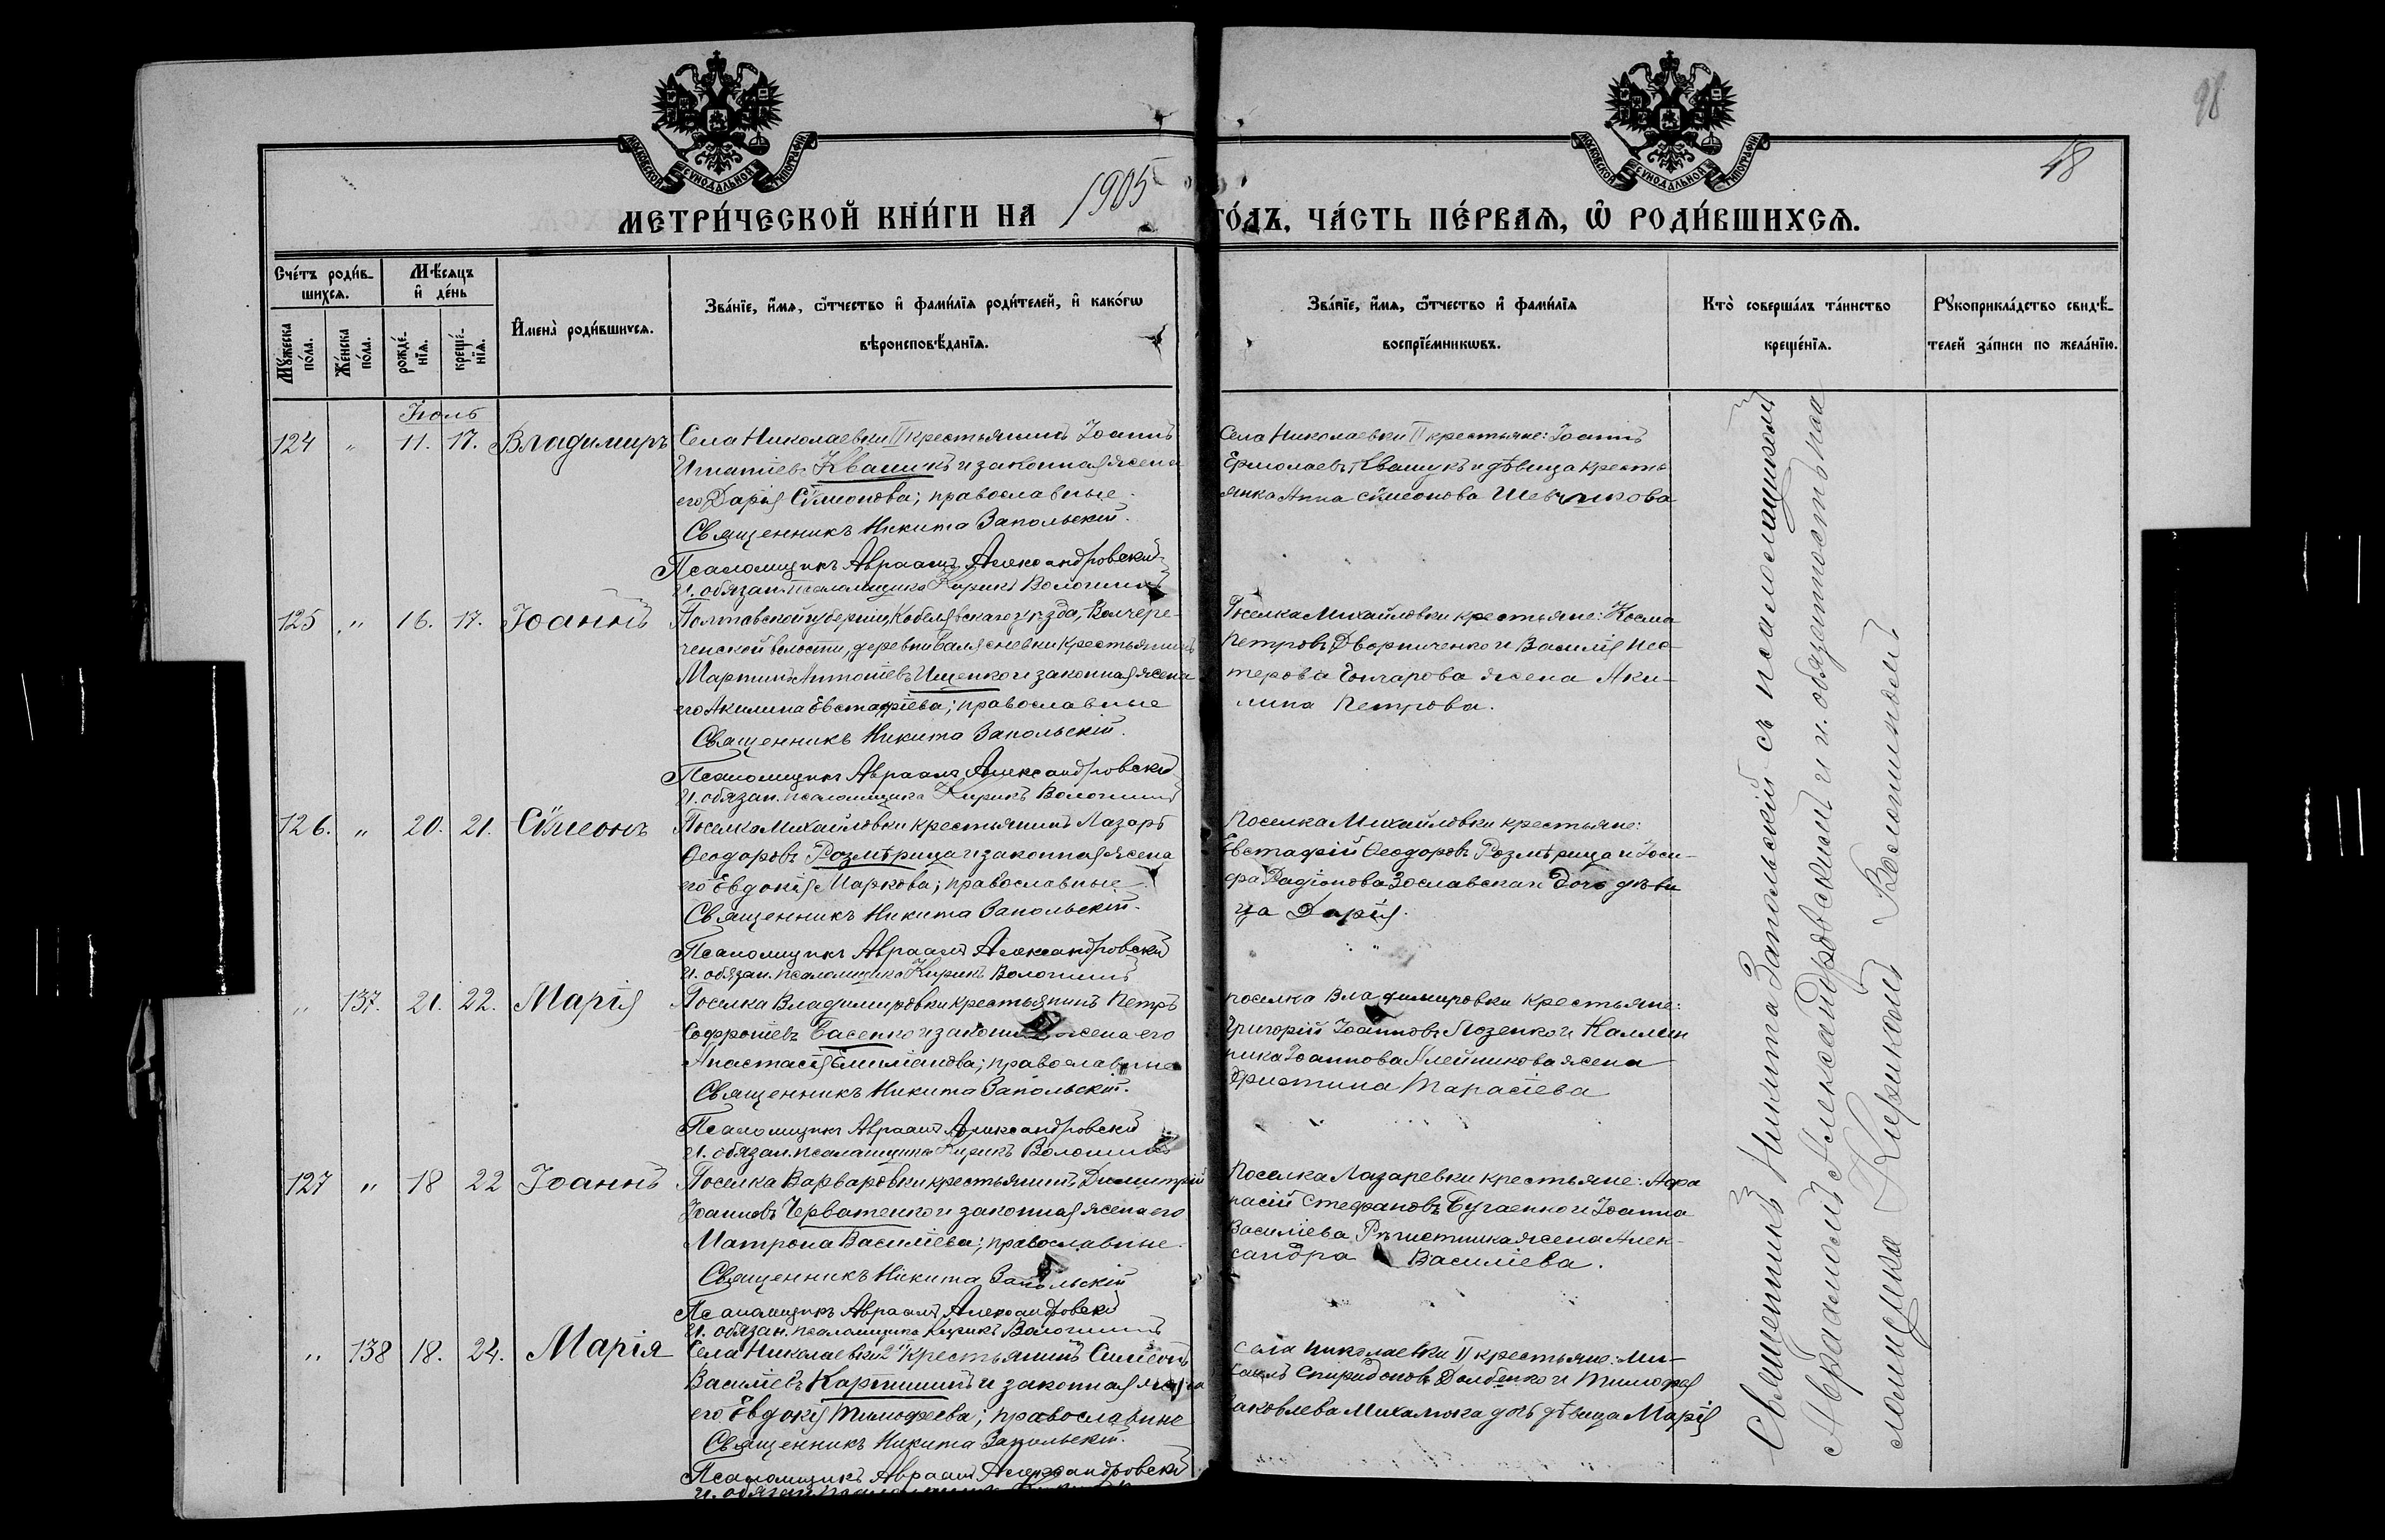 98
48
МОСКОВСКОЙ СѴНОДАЛЬНОЙ ТИПОГРАФІИ
МОСКОВСКОЙ СѴНОДАЛЬНОЙ ТИПОГРАФІИ
МЕТРИ́ЧЕСКОЙ КНИ́ГИ НА 1905 ГО́ДЪ, ЧА́СТЬ ПЕ́РВАѦ, Ѽ РОДИ́ВШИХСѦ.
Сче́тъ роди́в-
шихсѧ.
Мꙋ́жеска по́ла.
Же́нска по́ла.
Мѣ́сѧцъ
и҆ де́нь
рожде́-
нїѧ.
креще́-
нїѧ.
И҆мена̀ роди́вшихсѧ.
Зва́нїе, и҆́мѧ, ѻ҆́тчество и҆ фами́лїѧ роди́телей, и҆ како́гѡ
вѣроисповѣ́данїѧ.
Зва́нїе, и҆́мѧ, ѻ҆́тчество и҆ фами́лїѧ
воспрїе́мникѡвъ.
Кто̀ соверша́лъ та́инство
креще́нїѧ.
Рꙋкоприкла́дство свидѣ́-
телей за́писи по жела́нїю.
Іюль
124 " 11. 17. Владимиръ
Села Николаевки II крестьянинъ Іоаннъ
Игнатіевъ Квашукъ и законная жена
его Дарія Сѵмеонова; православные.
Священникъ Никита Запольскій.
Псаломщикъ Авраамъ Александровскій
И. обязан. псаломщика Кирикъ Волошинъ
Села Николаевки II крестьяне: Іоаннъ
Ермолаевъ Квашукъ и дѣвица кресть
янка Анна Сѵмеонова Шевчикова
125 " 16. 17. Іоаннъ
Полтавской губерніи, Кобелякскаго уѣзда,
ченской волости, деревни крестьянинъ
Мартинъ Антоніевъ Ищенко и законная жена
его Акилина Евстафіева; православные
Священникъ Никита Запольскій.
Псаломщикъ Авраамъ Александровскій
И. обязан. псаломщика Кирикъ Волошинъ
Поселка Михайловки крестьяне: Косма
Петровъ Дворниченко и Василія Нес-
терова Гончарова жена Аки-
лина Петрова.
126. " 20. 21. Сѵмеонъ
Поселка Михайловки крестьянинъ Лазарь
Ѳеодоровъ Розмѣрица и законная жена
его Евдокія Маркова; православные
Священникъ Никита Запольскій.
Псаломщикъ Авраамъ Александровскій
И. обязан. псаломщика Кирикъ Волошинъ
Поселка Михайловки крестьяне:
Евстафій Ѳеодоровъ Розмѣрица и Іоси-
фа Радіонова Зославскаго дочь дѣви
ца Дарія.
" 137. 21. 22. Марія
Поселка Владимировки крестьянинъ Петръ
Софроніевъ Басенко и законная жена его
Анастасія Емиліанова; православные
Священникъ Никита Запольскій.
Псаломщикъ Авраамъ Александровскій
И. обязан. псаломщика Кирикъ Волошинъ
поселка Владимировки крестьяне:
Григорій Іоанновъ Лозенко и Каллин
ника Іоаннова Алейникова жена
Христина Тарасіева
127 " 18 22 Іоаннъ
Поселка Варваровки крестьянинъ Димитрій
Іоанновъ Черватенко и законная жена его
Матрона Василіева; православные.
Священникъ Никита Запольскій
Псаломщикъ Авраамъ Александровскій
И. обязан. псаломщика Кирикъ Волошинъ
Поселка Лазаревки крестьяне: Аѳа
насій Стефановъ Бугаенко и Іоанна
Василіева жена Алек-
сандра Василіева.
" 138 18. 24. Марія
Села Николаевки 2й крестьянинъ Сѵмеонъ
Василіевъ Карпишинъ и законная жена
его Евдокія Тимоѳеева; православные
Священникъ Никита Запольскій.
Псаломщикъ Авраамъ Александровскій
Села Николаевки II крестьяне: Ми-
хаилъ Спиридоновъ Долбенко и Тимоѳея
Іаковлева Михалюка дочь дѣвица Марія
Священникъ Никита Запольскій съ псаломщикомъ
Авраамомъ Александровскимъ и и. обязанность пса
ломщика Кирикомъ Волошинымъ